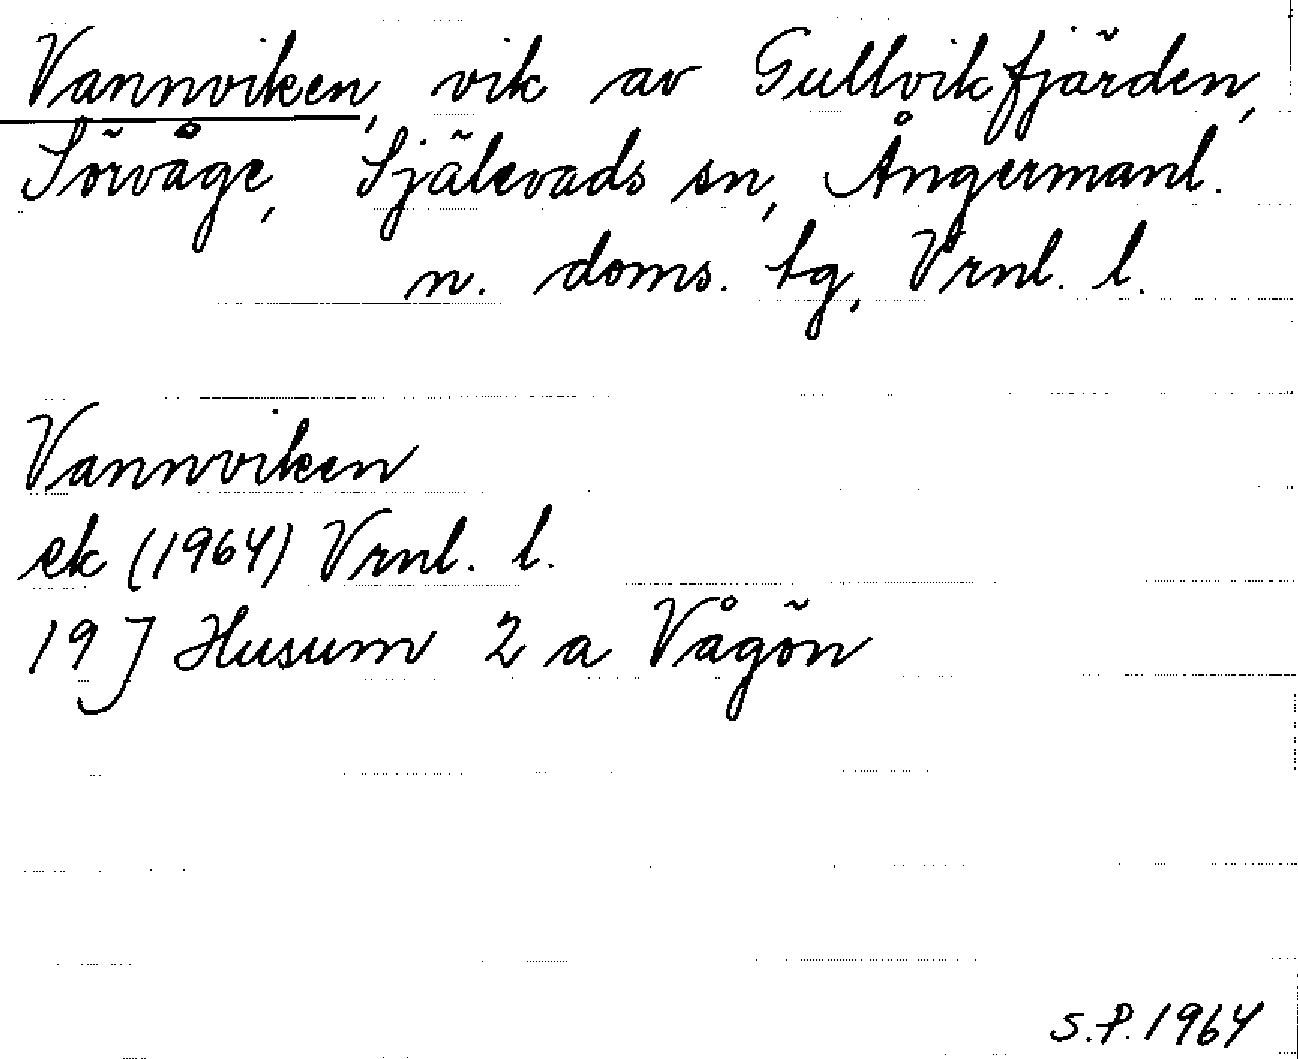 Vannviken, vik av Gullvikfjärden,
Sörvåge, Själevads sn, Ångermanl.
n. doms. tg, Vrnl. l.
Vannviken
ek (1964) Vrnl. l.
19 J Husum 2 a Vågön
S.P. 1964